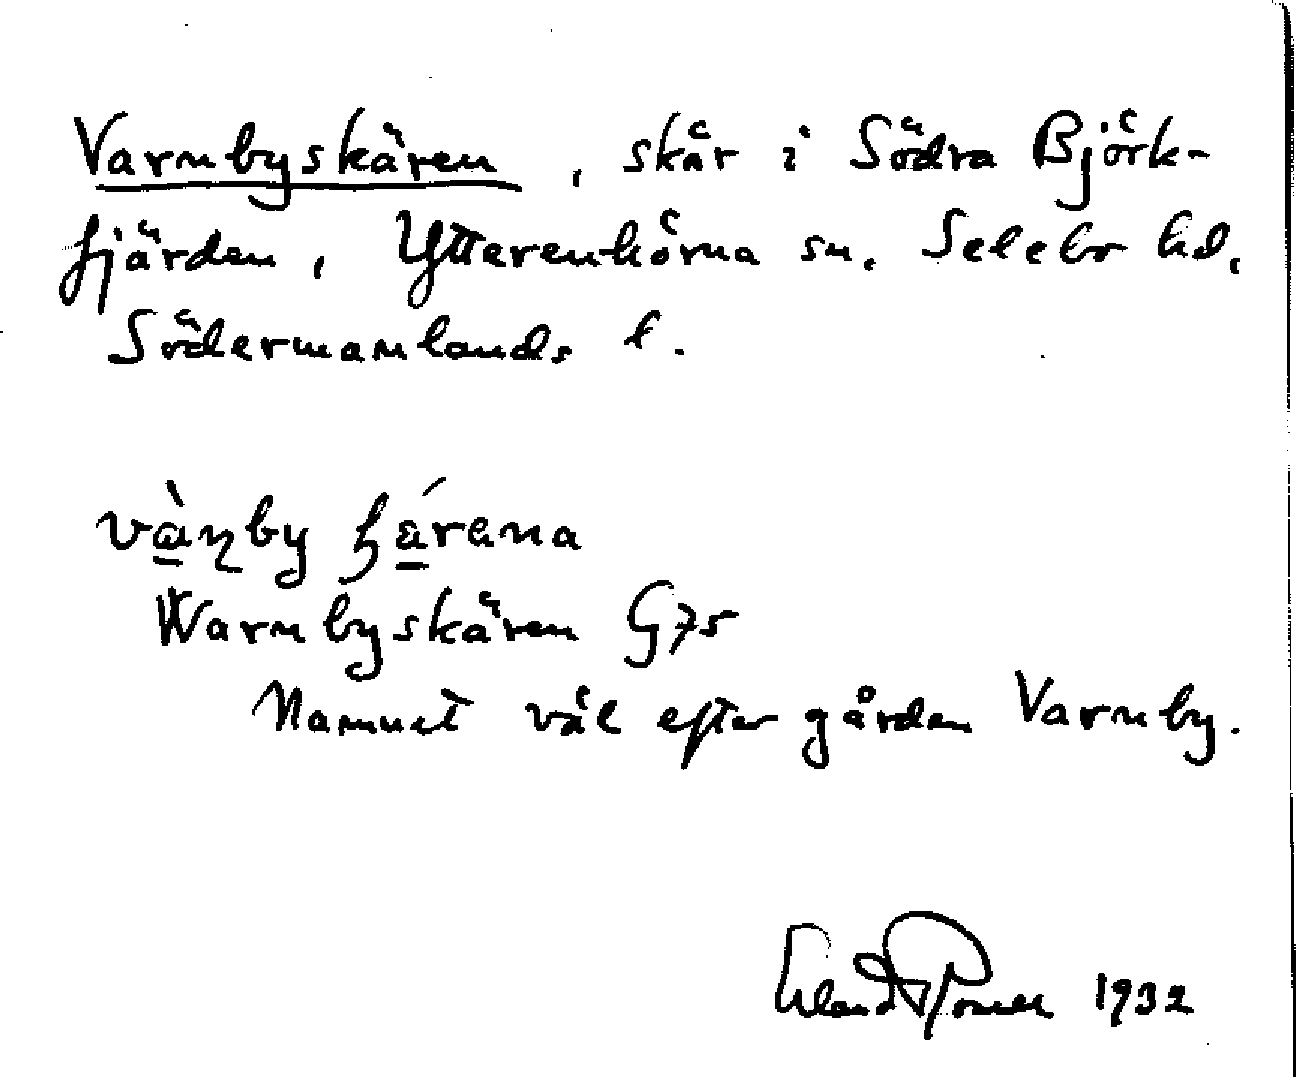 Varnbyskären, skär i Södra Björk-
fjärden, Ytterenhörna sn. Selebo hd,
Södermanlands l.
Warnbyskären G75
Namnet väl efter gården Varnby.
1932